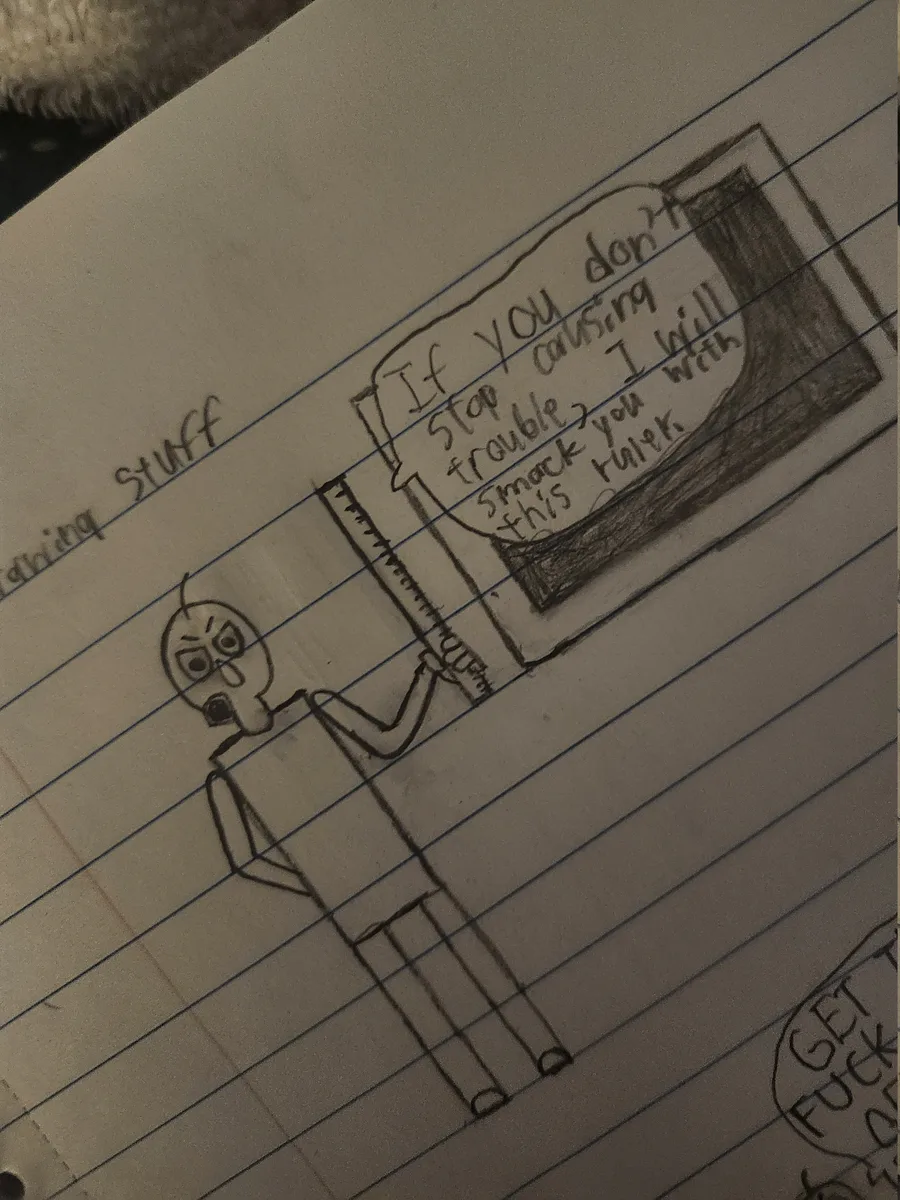 Stuff
If you don't
stop causing
trouble, I will
smack you with
this ruler.
GET
FUCK